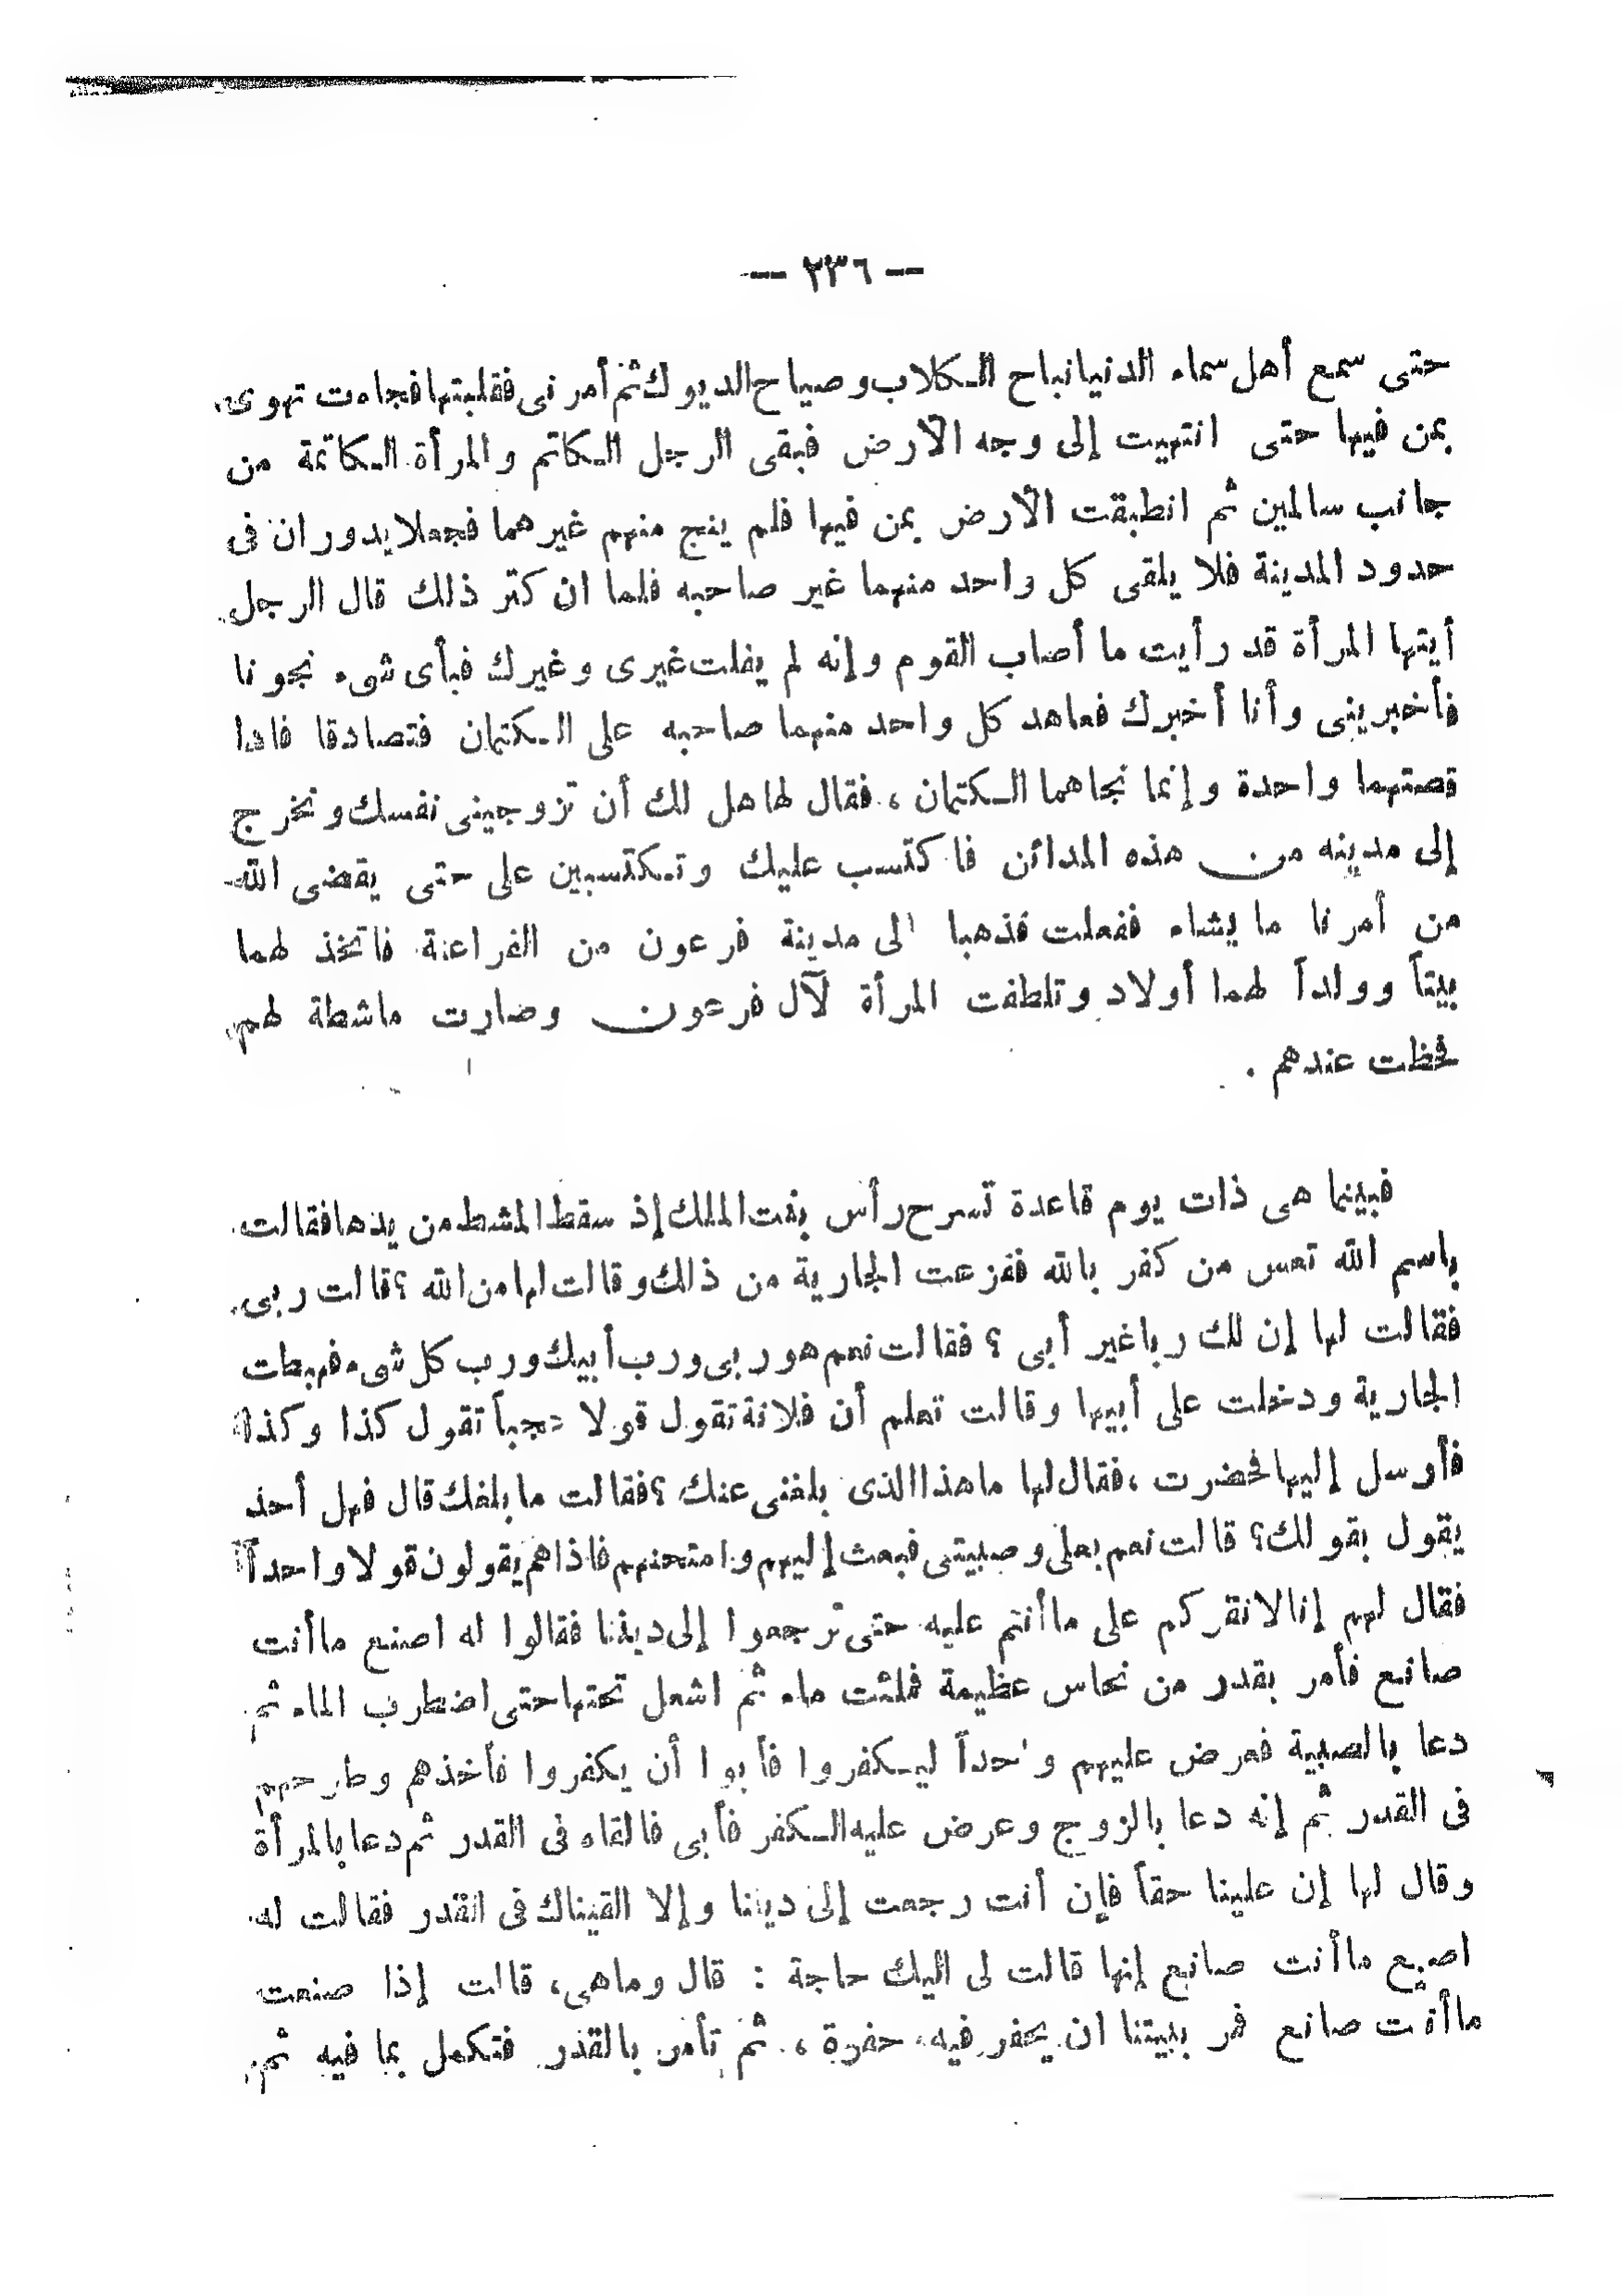 — ٢٣٦ —
حتى سمع أهل سماء الدنيا نباح الكلاب وصياح الديوك ثم أمرنى فقلبتها فجاءت تهوى
بمن فيها حتى انتهيت إلى وجه الأرض فبقى الرجل الكاتم والمرأة الكاتمة من
جانب سالمين ثم انطبقت الأرض بمن فيها فلم ينج منهم غيرهما فجعلا يدوران فى
حدود المدينة فلا يلقى كل واحد منهما غير صاحبه فلما ان كثر ذلك قال الرجل
أيتها المرأة قد رأيت ما أصاب القوم وإنه لم يفلت غيرى وغيرك فبأى شىء نجونا
فأخبرينى وأنا أخبرك فعاهد كل واحد منهما صاحبه على الكتمان فتصادقا فاذا
قصتهما واحدة وإنما نجاهما الكتمان ، فقال لها هل لك أن تزوجينى نفسك ونخرج
إلى مدينه من هذه المدائن فاكتسب عليك وتكتسبين على حتى يقضى الله
من أمرنا ما يشاء ففعلت فذهبا الى مدينة فرعون من الفراعنة فاتخذ لهما
بيتاً وولداً لهما أولاد وتلطفت المرأة لآل فرعون وصارت ماشطة لهم
فحظت عندهم .
فبينما هى ذات يوم قاعدة تسرح رأس بنت الملك إذ سقط المشط من يدها فقالت
باسم الله تعس من كفر بالله ففزعت الجارية من ذلك وقالت لها من الله ؟ قالت ربى
فقالت لها إن لك ربا غير أبى ؟ فقالت نعم هو ربى ورب أبيك ورب كل شىء فهبطت
الجارية ودخلت على أبيها وقالت تعلم أن فلانة تقول قولا عجباً تقول كذا وكذا
فأرسل إليها فحضرت ، فقال لها ما هذا الذى بلغنى عنك ؟ فقالت ما بلغك قال فهل أحد
يقول بقولك ؟ قالت نعم بعلى وصبيتى فبعث إليهم وامتحنهم فاذا هم يقولون قولا واحداً
فقال لهم إنا لا نقركم على ما أنتم عليه حتى ترجعوا إلى ديننا فقالوا له اصنع ما أنت
صانع فأمر بقدر من نحاس عظيمة فملئت ماء ثم اشعل تحتها حتى اضطرب الماء ثم
دعا بالصبية فعرض عليهم واحداً ليكفروا فأبوا أن يكفروا فأخذهم وطرحهم
فى القدر ثم إنه دعا بالزوج وعرض عليه الكفر فأبى فالقاه فى القدر ثم دعا بالمرأة
وقال لها إن علينا حقاً فإن أنت رجعت إلى ديننا وإلا القيناك فى القدر فقالت له
اصنع ما أنت صانع إنها قالت لى اليك حاجة : قال وماهى، قالت إذا صنعت
ما أنت صانع فمر ببيتنا ان يحفر فيه حفرة ، ثم تأمر بالقدر فتكمل بما فيه ثم